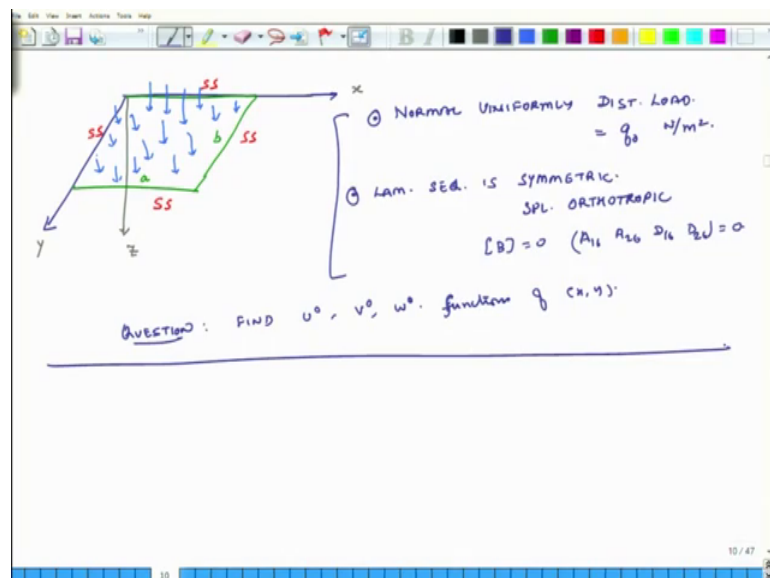 File Edit View Insert Actions Tools Help
B I
x
SS
SS
b
SS
a
SS
y
z
⊙ NORMAL UNIFORMLY DIST. LOAD.
= q₀ N/m².
⊙ LAM. SEQ. IS SYMMETRIC.
SPL. ORTHOTROPIC
[B] = 0 (A₁₆ A₂₆ D₁₆ D₂₆) = 0
QUESTION: FIND u⁰, v⁰, w⁰. function of (x, y).
10 / 47
10